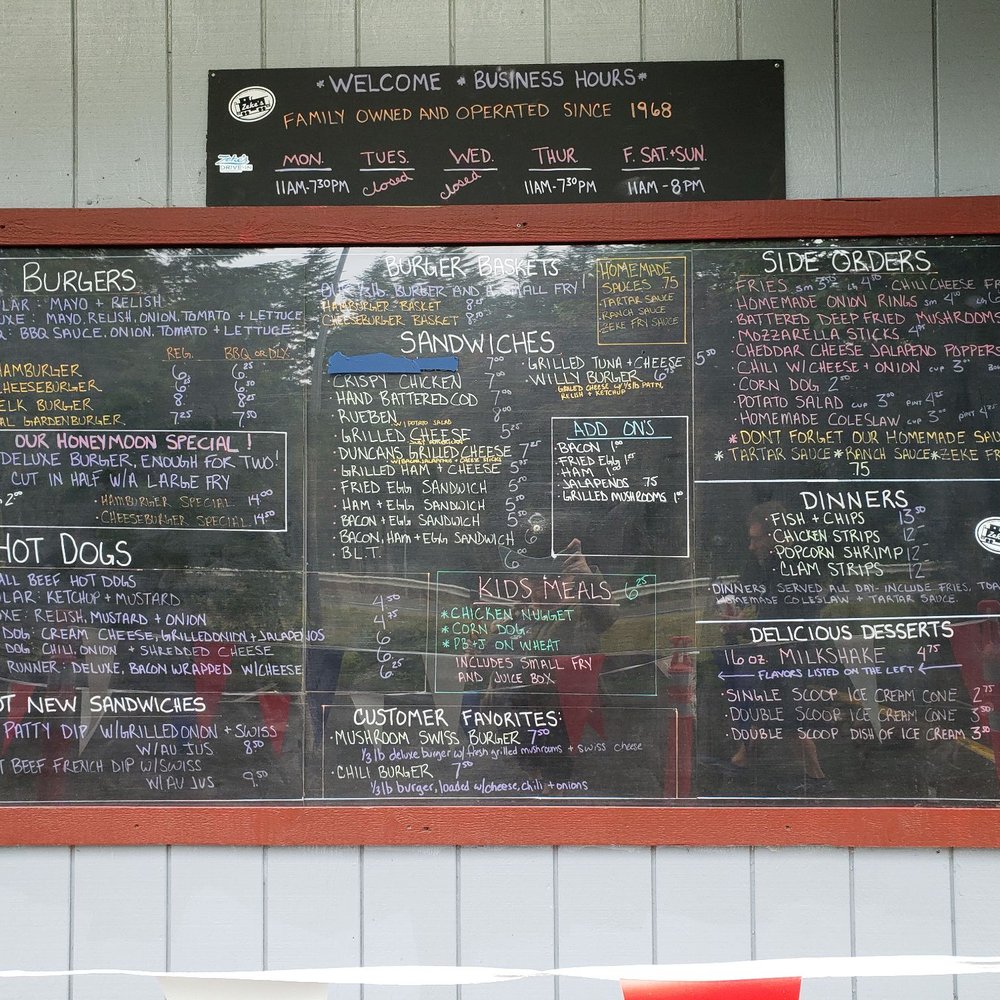 *WELCOME * BUSINESS HOURS*
Zeke's
FAMILY OWNED AND OPERATED SINCE 1968
Zeke's
DRIVE-IN
MON. TUES. WED. THUR F. SAT.+SUN.
11AM-7:30PM closed closed 11AM-7:30PM 11AM-8PM
BURGERS
LAR: MAYO + RELISH
UXE: MAYO, RELISH, ONION, TOMATO + LETTUCE
Q: BBQ SAUCE, ONION, TOMATO + LETTUCE
REG. BBQ OR DLX
HAMBURGER 6 6.25
CHEESEBURGER 6.25 6.50
ELK BURGER 8 8.25
AL GARDENBURGER 7.25 7.50
OUR HONEYMOON SPECIAL!
DELUXE BURGER, ENOUGH FOR TWO!
CUT IN HALF W/A LARGE FRY
2.00 • HAMBURGER SPECIAL 14.00
• CHEESEBURGER SPECIAL 14.50
HOT DOGS
ALL BEEF HOT DOGS
ULAR: KETCHUP + MUSTARD 4.50
UXE: RELISH, MUSTARD + ONION 4.75
DOG: CREAM CHEESE, GRILLED ONION + JALAPENOS 6
DOG: CHILI, ONION + SHREDDED CHEESE 6
RUNNER: DELUXE, BACON WRAPPED W/CHEESE 6.25
NEW SANDWICHES
PATTY DIP W/GRILLED ONION + SWISS
W/AU JUS 8.50
BEEF FRENCH DIP W/SWISS
W/AU JUS 9.50
BURGER BASKETS
BURGER AND A SMALL FRY!
HAMBURGER BASKET
CHEESEBURGER BASKET
HOMEMADE
SAUCES .75
• TARTAR SAUCE
• RANCH SAUCE
• ZEKE FRY SAUCE
SANDWICHES
7.00
CRISPY CHICKEN 7.00
HAND BATTERED COD 7.00
RUEBEN 8.00
W/ POTATO SALAD
• GRILLED CHEESE 5.25
• DUNCANS GRILLED CHEESE 7.25
• GRILLED HAM + CHEESE
• FRIED EGG SANDWICH
• HAM + EGG SANDWICH
• BACON + EGG SANDWICH
• BACON, HAM + EGG SANDWICH
• B.L.T.
• GRILLED TUNA + CHEESE 5.50
• WILLY BURGER
GRILLED CHEESE W/ 1/3 LB PATTY,
RELISH + KETCHUP
ADD ONS
• BACON 1.00
• FRIED EGG
• HAM
• JALAPENOS .75
• GRILLED MUSHROOMS 1.00
KIDS MEALS 6.25
* CHICKEN NUGGET
* CORN DOG
* PB+J ON WHEAT
INCLUDES SMALL FRY
AND JUICE BOX
CUSTOMER FAVORITES:
• MUSHROOM SWISS BURGER 7.50
1/3 lb deluxe burger w/ fresh grilled mushrooms + swiss cheese
• CHILI BURGER 7.50
1/3 lb burger, loaded w/cheese, chili + onions
SIDE ORDERS
FRIES sm 3.25 Lh 4.50 CHILI CHEESE FR
HOMEMADE ONION RINGS sm 4.00
BATTERED DEEP FRIED MUSHROOMS
MOZZARELLA STICKS
CHEDDAR CHEESE JALAPENO POPPERS
CHILI W/CHEESE + ONION CUP 3.00
CORN DOG 2.50
POTATO SALAD CUP 3.00 PINT 4.75
HOMEMADE COLESLAW CUP 3.00 PINT
*DON'T FORGET OUR HOMEMADE SAU
*TARTAR SAUCE *RANCH SAUCE *ZEKE FR
.75
DINNERS
• FISH + CHIPS 13.50
• CHICKEN STRIPS 12-
• POPCORN SHRIMP 12-
• CLAM STRIPS 12
DINNERS SERVED ALL DAY- INCLUDE FRIES,
HOMEMADE COLESLAW + TARTAR SAUCE.
DELICIOUS DESSERTS
16 oz. MILKSHAKE 4.75
FLAVORS LISTED ON THE LEFT
• SINGLE SCOOP ICE CREAM CONE 2.75
• DOUBLE SCOOP ICE CREAM CONE 3.50
• DOUBLE SCOOP DISH OF ICE CREAM 3.50